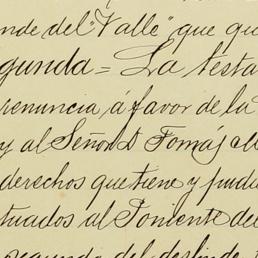 nde del "Valle" que qu
gunda = La testa
renuncia á favor de la
y al Señor D Tomás
derechos que tiene y pueda
tuados al Poniente del
segundo del deslinde